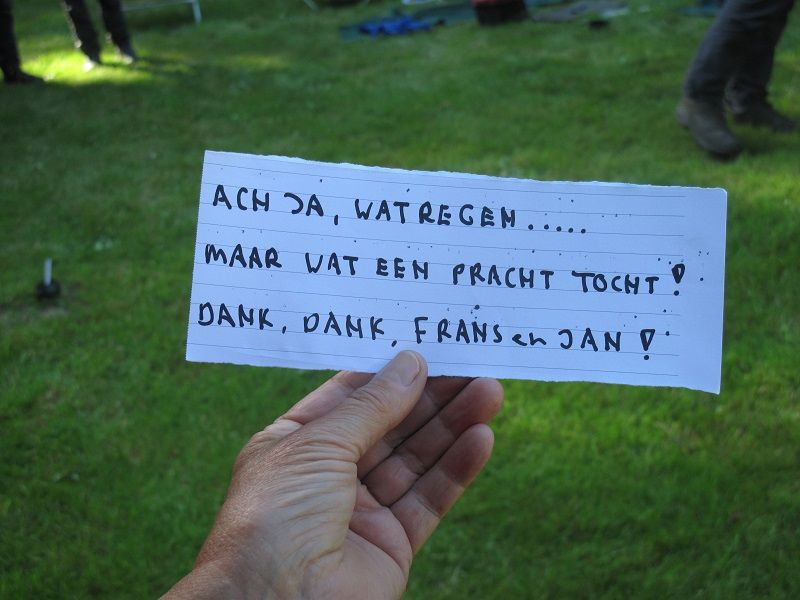 ACH JA, WAT REGEN.....
MAAR WAT EEN PRACHT TOCHT!
DANK, DANK, FRANS en JAN!